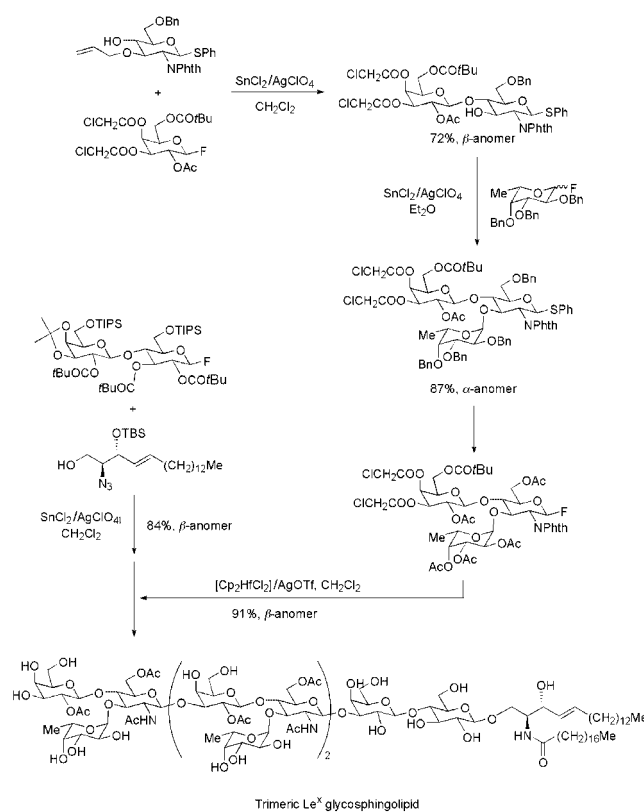 OBn
HO
O
SPh
O
NPhth
+
ClCH2COO
OCOtBu
O
ClCH2COO
F
OAc
SnCl2/AgClO4
CH2Cl2
ClCH2COO
OCOtBu
OBn
ClCH2COO
O
O
O
HO
SPh
OAc
NPhth
72%, β-anomer
SnCl2/AgClO4
Et2O
Me
O
F
OBn
OBn
BnO
ClCH2COO
OCOtBu
OBn
ClCH2COO
O
O
O
O
SPh
OAc
NPhth
Me
O
OBn
OBn
BnO
87%, α-anomer
OTIPS
OTIPS
O
O
O
O
O
F
tBuOCO
tBuOCO
OCOtBu
+
OTBS
HO
(CH2)12Me
N3
SnCl2/AgClO4l
CH2Cl2
84%, β-anomer
ClCH2COO
OCOtBu
OAc
ClCH2COO
O
O
O
O
F
OAc
NPhth
Me
O
OAc
OAc
AcO
[Cp2HfCl2]/AgOTf, CH2Cl2
91%, β-anomer
HO
OH
OAc
HO
OH
OAc
HO
OH
OH
OH
HO
O
O
O
O
O
O
O
O
O
O
O
O
(CH2)12Me
OAc
AcHN
OAc
AcHN
OH
HO
OH
HN
(CH2)16Me
Me
O
OH
OH
HO
Me
O
OH
OH
HO
2
O
Trimeric Lex glycosphingolipid